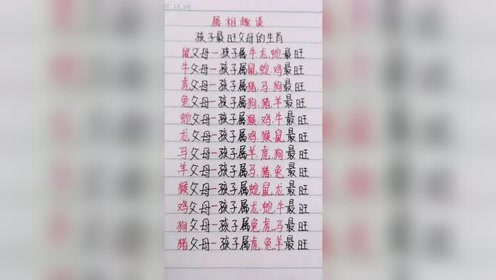 属相趣谈
孩子最旺父母的生肖
鼠父母一孩子属牛.龙.蛇最旺
牛父母一孩子属鼠.蛇.鸡最旺
虎父母一孩子属猪.马.狗最旺
兔父母一孩子属狗.猪.羊最旺
蛇父母一孩子属猴.鸡.牛最旺
龙父母一孩子属鸡.猴.鼠最旺
马父母一孩子属羊.虎.狗最旺
羊父母一孩子属马.猪.兔最旺
猴父母一孩子属蛇鼠龙最旺
鸡父母一孩子属龙.蛇牛最旺
狗父母一孩子属兔虎马最旺
猪父母一孩子属虎兔羊最旺